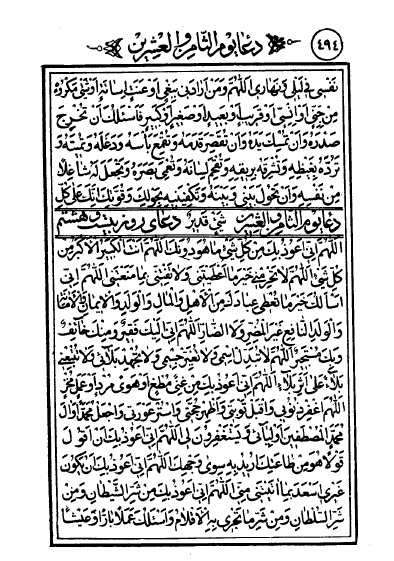 ٤٩٤ دعا يوم الثامن والعشرين
نفسي في ليلي ونهاري اللهم ومن ارادني ببغي او عنت او مساءة او شئ مكروه
من جني او انسي او قريب او بعيد او صغير او كبير فاسئلك ان تخرج
صدره وان تمسك يده وان تقصر قدمه وتقمع بأسه ودغله وتميته و
ترده بغيظه وتشرقه بريقه وتفحم لسانه وتعمي بصره وتجعل له شاغلا
من نفسه وان تحول بيني وبينه وتكفينيه بحولك وقوتك انك على كل
دعا يوم الثامن والعشرين شئ قدير دعاى روز بيست و هشتم
اللهم اني اعوذ بك من كل شئ ما هو دونك اللهم انت الكبير الاكبر من
كل شئ اللهم لا تحرمني خير ما اعطيتني ولا تفتني بما منعتني اللهم اني
اسألك خير ما تعطي عبادك من الاهل والمال والولد والايمان والامانة
والولد النافع غير المضر ولا الضار اللهم اني اليك فقير ومنك خائف
وبك مستجير اللهم لا تبدل اسمي ولا تغير جسمي ولا تجهد بلائي ولا تتبعني
ببلاء على اثر بلاء اللهم اني اعوذ بك من غنى مطغ او هوى مرد او عمل مخز
اللهم اغفر ذنوبي واقبل توبتي واظهر حجتي واستر عورتي واجعل محمدا وال
محمد المصطفين اوليائي ويستغفرون لي اللهم اني اعوذ بك ان اقول
قولا هو من طاعتك اريد به سوى وجهك اللهم اني اعوذ بك ان يكون
غيري اسعد بما اتيتني مني اللهم اني اعوذ بك من شر الشيطان ومن
شر السلطان ومن شر ما تجري به الاقلام واسئلك عملا بارا وعيشا